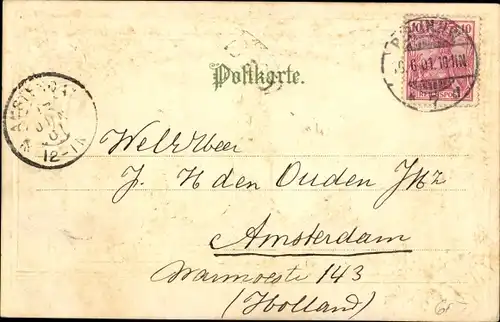 10
Postkarte.
AMSTERDAM
12-1N
WelEdHeer
J. H den Ouden JHz
Amsterdam
Warmoestr 143
(Holland)